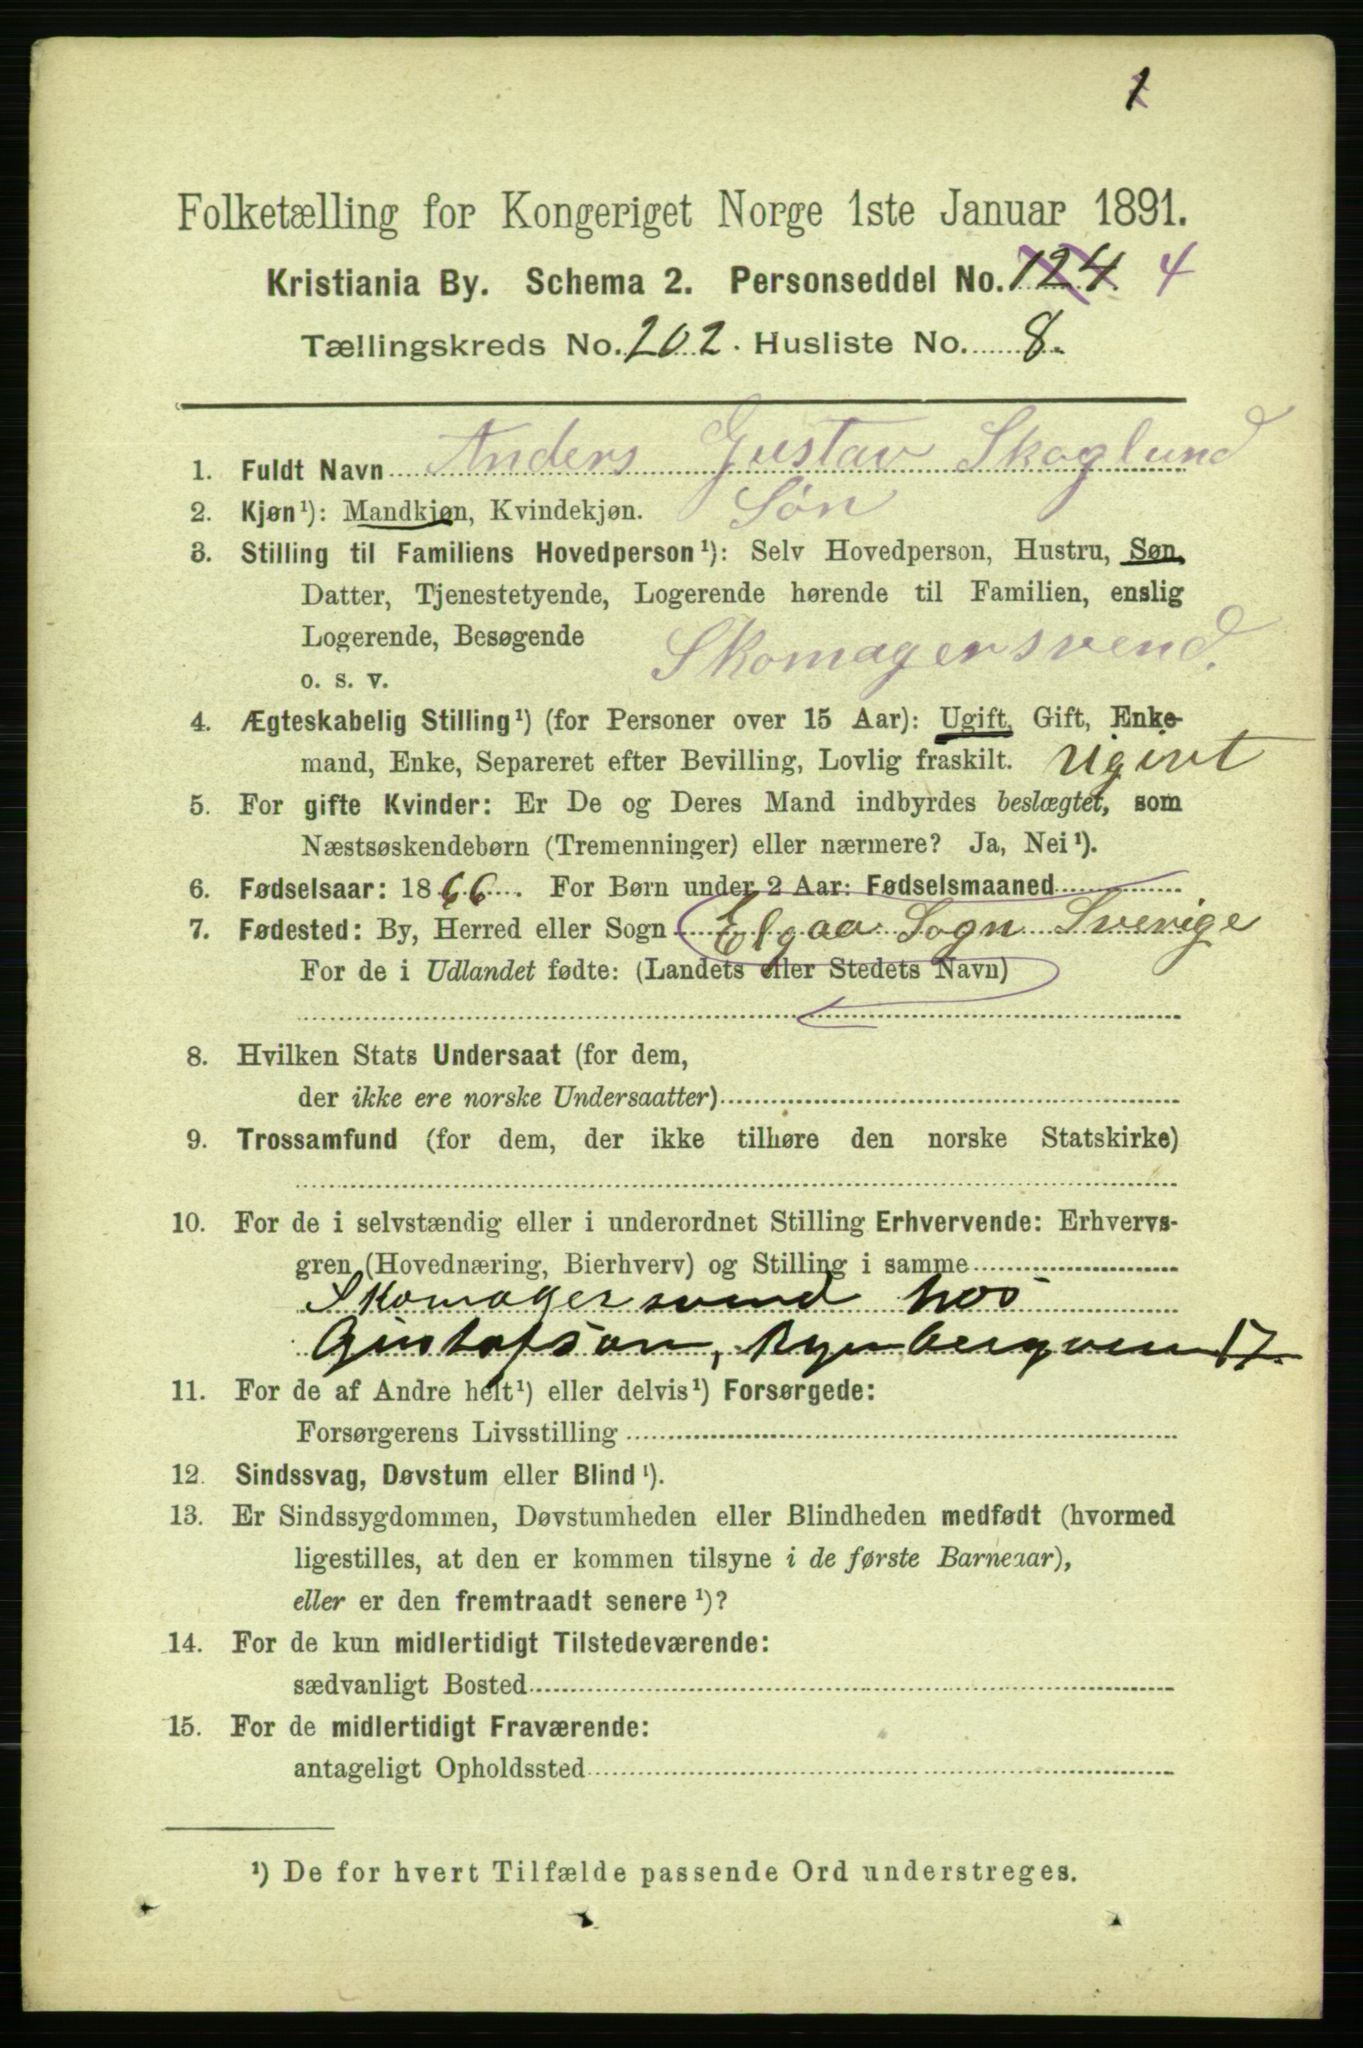 1
Folketælling for Kongeriget Norge 1ste Januar 1891.
Kristiania By. Schema 2. Personseddel No. 124 4
Tællingskreds No. 202. Husliste No. 8.
1. Fuldt Navn Anders Gustav Skoglund
2. Kjøn¹): Mandkjøn, Kvindekjøn. Søn
3. Stilling til Familiens Hovedperson¹): Selv Hovedperson, Hustru, Søn,
Datter, Tjenestetyende, Logerende hørende til Familien, enslig
Logerende, Besøgende Skomagersvend.
o. s. v.
4. Ægteskabelig Stilling¹) (for Personer over 15 Aar): Ugift, Gift, Enke-
mand, Enke, Separeret efter Bevilling, Lovlig fraskilt. Ugivt
5. For gifte Kvinder: Er De og Deres Mand indbyrdes beslægtet, som
Næstsøskendebørn (Tremenninger) eller nærmere? Ja, Nei¹).
6. Fødselsaar: 1866. For Børn under 2 Aar: Fødselsmaaned
7. Fødested: By, Herred eller Sogn Elgaa Sogn Sverige
For de i Udlandet fødte: (Landets eller Stedets Navn)
8. Hvilken Stats Undersaat (for dem,
der ikke ere norske Undersaatter)
9. Trossamfund (for dem, der ikke tilhøre den norske Statskirke)
10. For de i selvstændig eller i underordnet Stilling Erhvervende: Erhvervs-
gren (Hovednæring, Bierhverv) og Stilling i samme
Skomagersvend hos
Gustafson, 17.
11. For de af Andre helt¹) eller delvis¹) Forsørgede:
Forsørgerens Livsstilling
12. Sindssvag, Døvstum eller Blind¹).
13. Er Sindssygdommen, Døvstumheden eller Blindheden medfødt (hvormed
ligestilles, at den er kommen tilsyne i de første Barneaar),
eller er den fremtraadt senere¹)?
14. For de kun midlertidigt Tilstedeværende:
sædvanligt Bosted
15. For de midlertidigt Fraværende:
antageligt Opholdssted
¹) De for hvert Tilfælde passende Ord understreges.